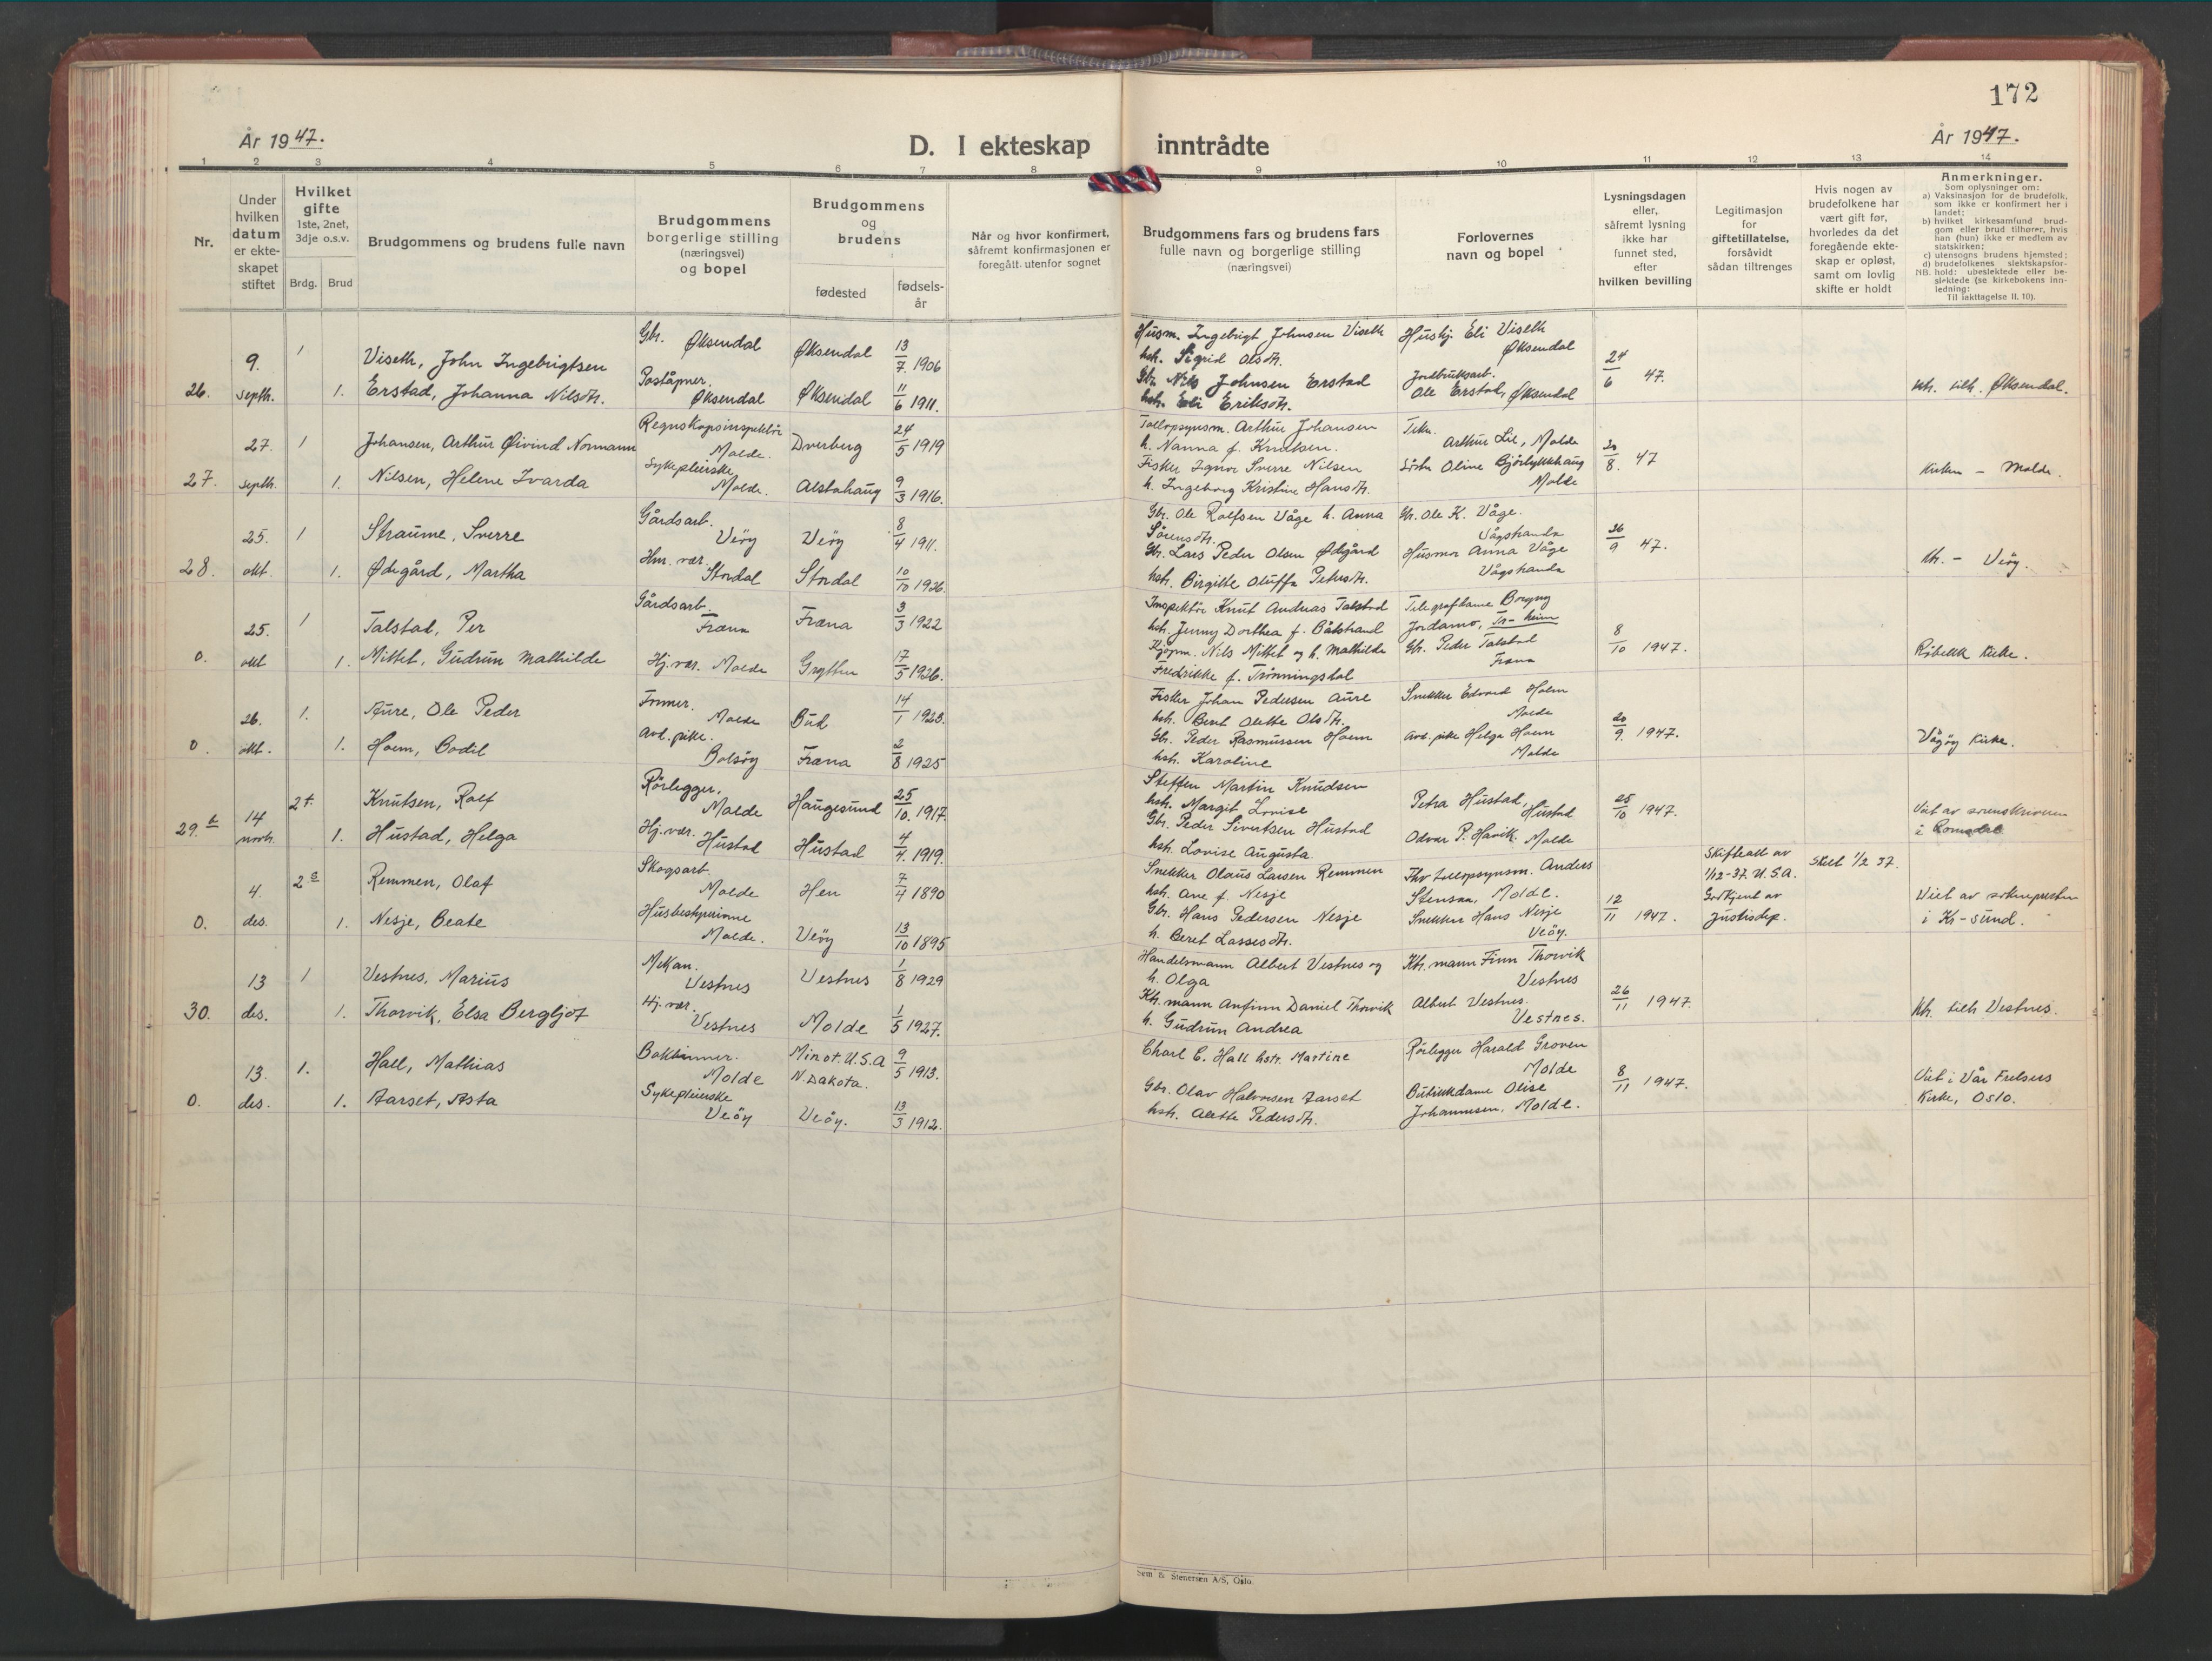 172
År 1947.
D. I ekteskap inntrådte
År 1947.
1 2 3 4 5 6 7 8 9 10 11 12 13 14
Nr.
Under
hvilken
datum
er ekte-
skapet
stiftet
Hvilket
gifte
1ste, 2net,
3dje o.s.v.
Brdg. Brud
Brudgommens og brudens fulle navn
Brudgommens
borgerlige stilling
(næringsvei)
og bopel
Brudgommens
og
brudens
fødested
fødsels-
år
Når og hvor konfirmert,
såfremt konfirmasjonen er
foregått utenfor sognet
Brudgommens fars og brudens fars
fulle navn og borgerlige stilling
(næringsvei)
Forlovernes
navn og bopel
Lysningsdagen
eller,
såfremt lysning
ikke har
funnet sted,
efter
hvilken bevilling
Legitimasjon
for
giftetillatelse,
forsåvidt
sådan tiltrenges
Hvis nogen av
brudefolkene har
vært gift før,
hvorledes da det
foregående ekte-
skap er opløst,
samt om lovlig
skifte er holdt
Anmerkninger.
Som oplysninger om:
a) Vaksinasjon for de brudefolk,
som ikke er konfirmert her i
landet;
b) hvilket kirkesamfund brud-
gom eller brud tilhører, hvis
han (hun) ikke er medlem av
statskirken;
c) utensogns brudens hjemsted;
d) brudefolkenes slektskapsfor-
NB. hold: ubeslektede eller be-
slektede (se kirkebokens inn-
ledning:
Til iakttagelse II. 10).
26. 9. septb. 1
Viseth, John Ingebrigtsen
Gbr. Øksendal
Øksendal 13/7 1906
Husm. Ingebrigt Johnsen Viseth
hst. Sigrid Olsdtr.
Huskj. Eli Viseth
Øksendal
24/6 47.
1. Erstad, Johanna Nilsdtr.
Poståpner.
Øksendal
Øksendal 11/6 1911.
Gbr. Nils Johnsen Erstad
hst. Eli Eriksdtr.
Jordbruksarb.
Ole Erstad, Øksendal
Øksendal.
27. 27. septb. 1
Johansen, Arthur Øivind Normann
Regnskapsinspektör
Molde.
Dverberg 24/5 1919
Tollopsynsm. Arthur Johansen
h. Nanna f. Knutsen.
Arthur Lie, Molde
20/8. 47
1. Nilsen, Helene Ivarda
Sykepleierske
Molde.
Alstahaug 9/3 1916.
Fisker Ingvar Sverre Nilsen
h. Ingeborg Kristine Hansdtr.
Oline Bjørlykkhaug
Molde
Kirken – Molde.
28. 25. okt. 1
Straume, Sverre
Gårdsarb.
Veöy
Veöy 8/4 1911.
Gbr. Ole Rolfsen Våge h. Anna
Sörensdtr.
Gbr. Ole K. Våge.
Vågstranda
26/9 47.
1. Ødegård, Martha
Hm. vær.
Stordal
Stordal 10/10 1926.
Gbr. Lars Peder Olsen Ødegård
hst. Birgitte Oluffa Petersdtr.
Husmor Anna Våge
Vågstranda
Kh. – Veöy.
0. 25. okt 1
Talstad, Per
Gårdsarb.
Fræna
Fræna 3/3 1922
Inspektör Knut Andreas Talstad
hst. Jenny Dorthea f. Båtstrand
Telegrafdame Borgny
Jordamo, Tr-heim
8/10 1947.
1. Mittet, Gudrun Mathilde
Hj. vær. Molde
Grytten 17/5 1926.
Kjøpm. Nils Mittet og h. Mathilde
Fredrikke f. Trönningsdal
Gbr. Peder Talstad
Fræna
Röbekk Kirke.
0. 26. okt. 1.
Aure, Ole Peder
Former.
Molde
Bud 14/1 1923.
Fisker Johan Pedersen Aure
hst. Berit Olette Olsdtr.
Snekker Edvard Hoem
Molde
20/9 1947.
1. Hoem, Bodil
Avd. pike.
Bolsöy
Fræna 2/8 1925
Gbr. Peder Rasmussen Hoem
hst. Karoline
Avd. pike Helga Hoem
Molde
Vågöy Kirke.
29. b 14 novb. 2.
Knutsen, Rolf
Rörlegger,
Molde
Haugesund 25/10. 1917.
Steffen Martin Knudsen
hst. Margit Lovise
Petra Hustad,
Hustad
25/10 1947.
1. Hustad, Helga
Hj. vær.
Hustad
Hustad 4/4. 1919.
Gbr. Peder Sivertsen Hustad
hst. Lovise Augusta.
Odvar P. Havik. Molde
Viet av sorenskriveren
i Romsdal
0. 4. des. 2
Remmen, Olaf
Skogsarb.
Molde
Hen 7/4 1890
Snekker Olaus Larsen Remmen
hst. Ane f. Nesje
Fhv tollopsynsm. Anders
Stensaa, Molde.
12/11 1947.
Skifteatt av
1/12-37. U.S.A.
Godkjent av
Justisdep.
Skilt 1/2 37.
1. Nesje, Beate
Husbestyrerinne
Molde.
Veöy 13/10 1895
Gbr. Hans Pedersen Nesje
h. Beret Lassesdtr.
Snekker Hans Nesje
Veöy.
Viet av soknepresten
i Kr-sund.
30. 13 des. 1
Vestnes, Marius
Mekan.
Vestnes
Vestnes 1/8 1929
Handelsmann Albert Vestnes og
h. Olga
Kbr. mann Finn Thorvik
Vestnes
26/11 1947.
1. Thorvik, Elsa Bergljot
Hj. vær.
Vestnes
Molde 1/5 1927.
Kh. mann Anfinn Daniel Thorvik
h. Gudrun Andrea
Albert Vestnes.
Vestnes.
Vestnes.
0. 13. des. 1.
Hall, Mathias
Bokbinner.
Molde
Minot. U.S.A
N. Dakota. 9/5 1913.
Charl C. Hall hstr. Martine
Rörlegger Harald Groven
Molde
8/11 1947.
1. Aarset, Asta
Sykepleierske
Veöy
Veöy. 13/3 1912.
Gbr. Olav Halvorsen Aarset
hst. Alette Pedersdtr.
Butikkdame Olise
Johannesen, Molde.
Viet i Vår Frelsers
Kirke, Oslo.
Sem & Stenersen A/S, Oslo.